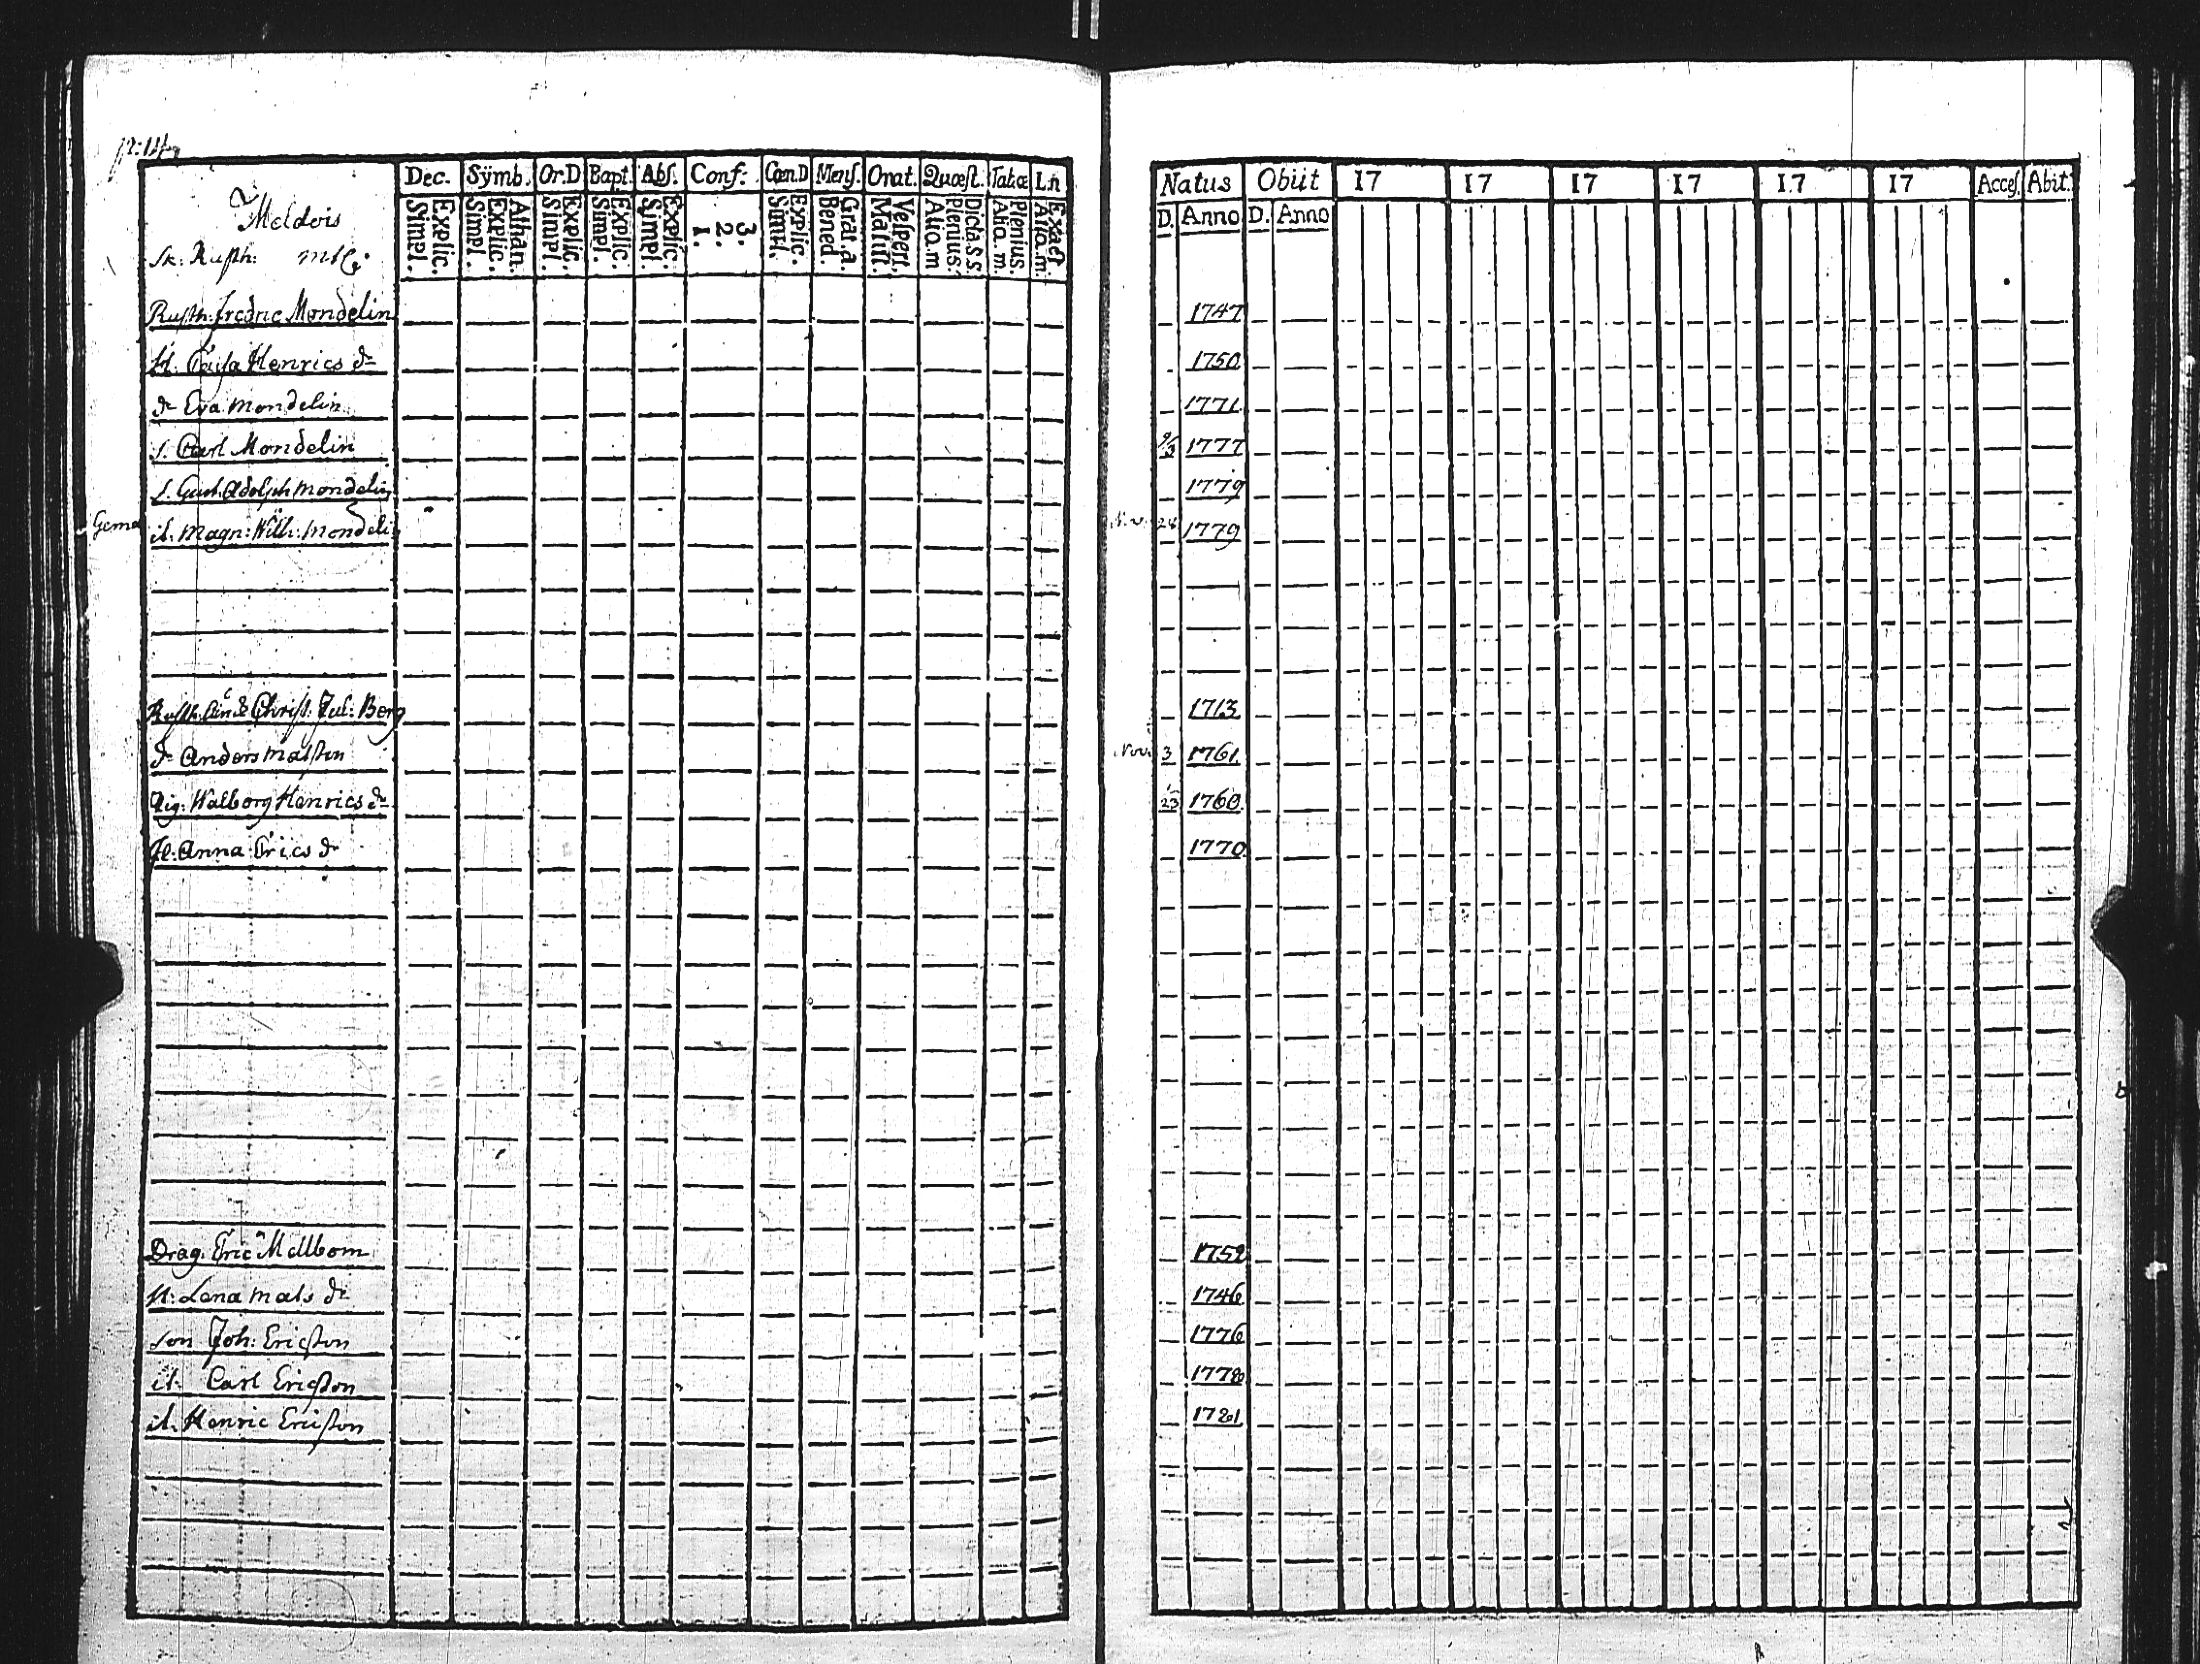 Dec. Sÿmb. Or.D Bapt. Abs. Conf: Cœn.D Mens. Orat. Quæst. Tab.œ Ln
Explic. Simpl. Athan. Explic. Simpl. Explic. Simpl. Explic. Simpl. Explic. Simpl. 3. 2. 1. Explic. Simpl. Grat. a. Bened. Vespert. Matut. Dicta S.S. Plenius. Aliq.m Plenius. Aliq.m. Exact. Aliq.m.
Natus Obiit 17 17 17 17 17 17 Acces. Abit.
D. Anno D. Anno
Meldois
Sk: Rusth:
Rusth: Fredric Mondelin 1747
H. Caisa Henrics dr 1750
dr Eva Mondelin 1771
s. Carl Mondelin 9/3 1777
s. Gust. Adolph Mondelin 1779
it. Magn: Wilh: Mondelin 28 1779
Christ. Jul: Berg 1713
dr Anders Matsson Nov. 3 1761
Pig: Walborg Henrics dr 1760
Anna Erics dr 1770
Drag. Eric Mellbom 1752
H: Lena Mats dr 1746
son Joh: Ericsson 1776
it. Carl Ericsson 1778
it. Henric Ericsson 1781